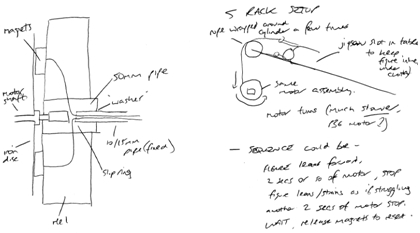 magnets
motor shaft
iron disc
50mm pipe
'washer'
10/15mm pipe (fixed)
slip ring
reel
5 RACK SETUP
rope wrapped around
cylinder a few turns
jigsaw slot in table
to keep
figure
under
same
motor assembly.
motor turns (much slower,
motor?)
- SEQUENCE could be -
FIGURE leans forward.
2 secs or so of motor, STOP
figure leans/strains as if struggling
another 2 secs of motor STOP.
WAIT, release magnets to reset.